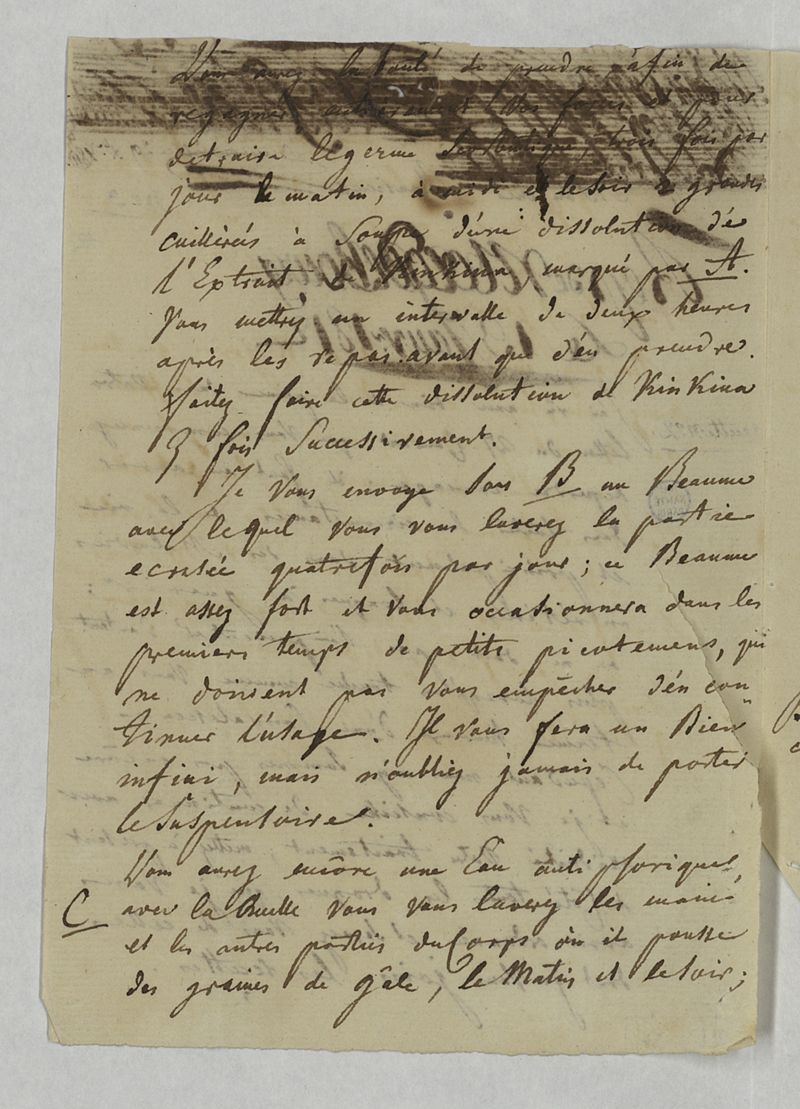 Vous aurez la bonté de prendre, afin de
regagner entierement des forces et pour
detruire le germe Scorbutique, trois fois par
jour le matin, à midi et le soir 2 grandes
cuillèrés à Soupe d'une dissolution dé
l'Extrait de Kinkina, marqué par A.
Vous mettrez un intervalle de deux heures
après les repas avant que d'én prendre.
faitez faire cette dissolution de KinKina
fois Successivement.
Je Vous envoye sous B un Beaume
avec lequel vous vous laverez la partie
ecrasée quatrefois par jour; ce Beaume
est assez fort et vous occasionnera dans les
premiers temps de petits picotemens, qui
ne doivent pas vous empêcher d'én con
tinuer l'usage. Il vous fera un Bien
infini, mais n'oubliez jamais de porter
le Suspensoire.
Vous aurez encôre une Eau antipsorique,
C avec la quelle vous vous laverez les mains
et les autres partiés du Corps ôu it pousse
des graines de gâle, le Matin et le soir;